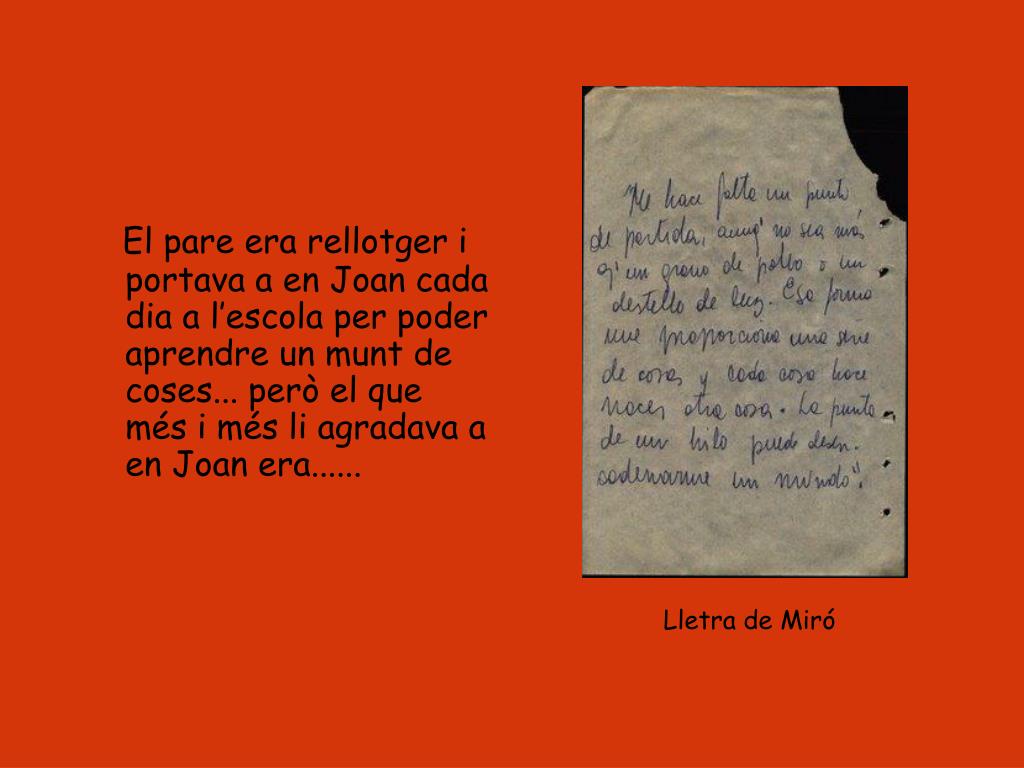 El pare era rellotger i
portava a en Joan cada
dia a l’escola per poder
aprendre un munt de
coses... però el que
més i més li agradava a
en Joan era......
Me hace falta un punto
de partida, aunq' no sea más
q' un grano de polvo o un
destello de luz. Esa forma
me proporciona una serie
de cosas y cada cosa hace
nacer otra cosa. La punta
de un hilo puede desen-
cadenarme un mundo".
Lletra de Miró